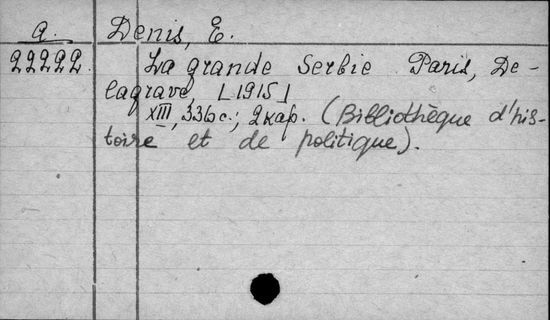 a. Denis, E.
22222. La grande Serbie Paris, De-
lagrave, [1915]
XIII, 336 с.; 2 кар. (Bibliothèque d'his-
toire et de politique).